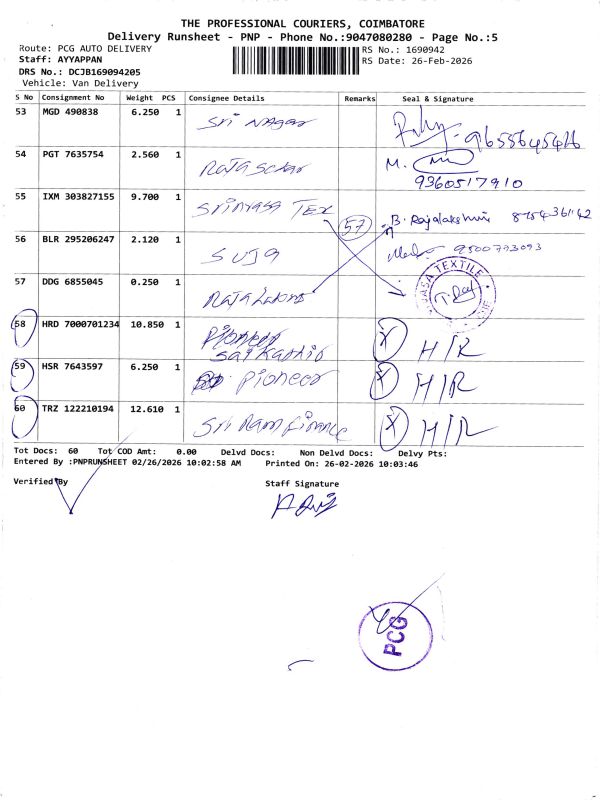 THE PROFESSIONAL COURIERS, COIMBATORE
Delivery Runsheet - PNP - Phone No.:9047080280 - Page No.:5
Route: PCG AUTO DELIVERY
RS No.: 1690942
Staff: AYYAPPAN
RS Date: 26-Feb-2026
DRS No.: DCJB169094205
Vehicle: Van Delivery
S No Consignment No Weight PCS Consignee Details Remarks Seal & Signature
53 MGD 490838 6.250 1 Sri Nagar 9655645426
54 PGT 7635754 2.560 1 Raja Sekar M.
9360517910
55 IXM 303827155 9.700 1 Srinivasa Tex 57 B. Rajalakshmi 8754361142
56 BLR 295206247 2.120 1 SUJA 9500773093
57 DDG 6855045 0.250 1 TEXTILE
58 HRD 7000701234 10.850 1 Pioneer X H/R
59 HSR 7643597 6.250 1 Pioneer X H/R
60 TRZ 122210194 12.610 1 Sri Ram Finance X H/R
Tot Docs: 60 Tot COD Amt: 0.00 Delvd Docs: Non Delvd Docs: Delvy Pts:
Entered By :PNPRUNSHEET 02/26/2026 10:02:58 AM Printed On: 26-02-2026 10:03:46
Verified By
Staff Signature
PCG